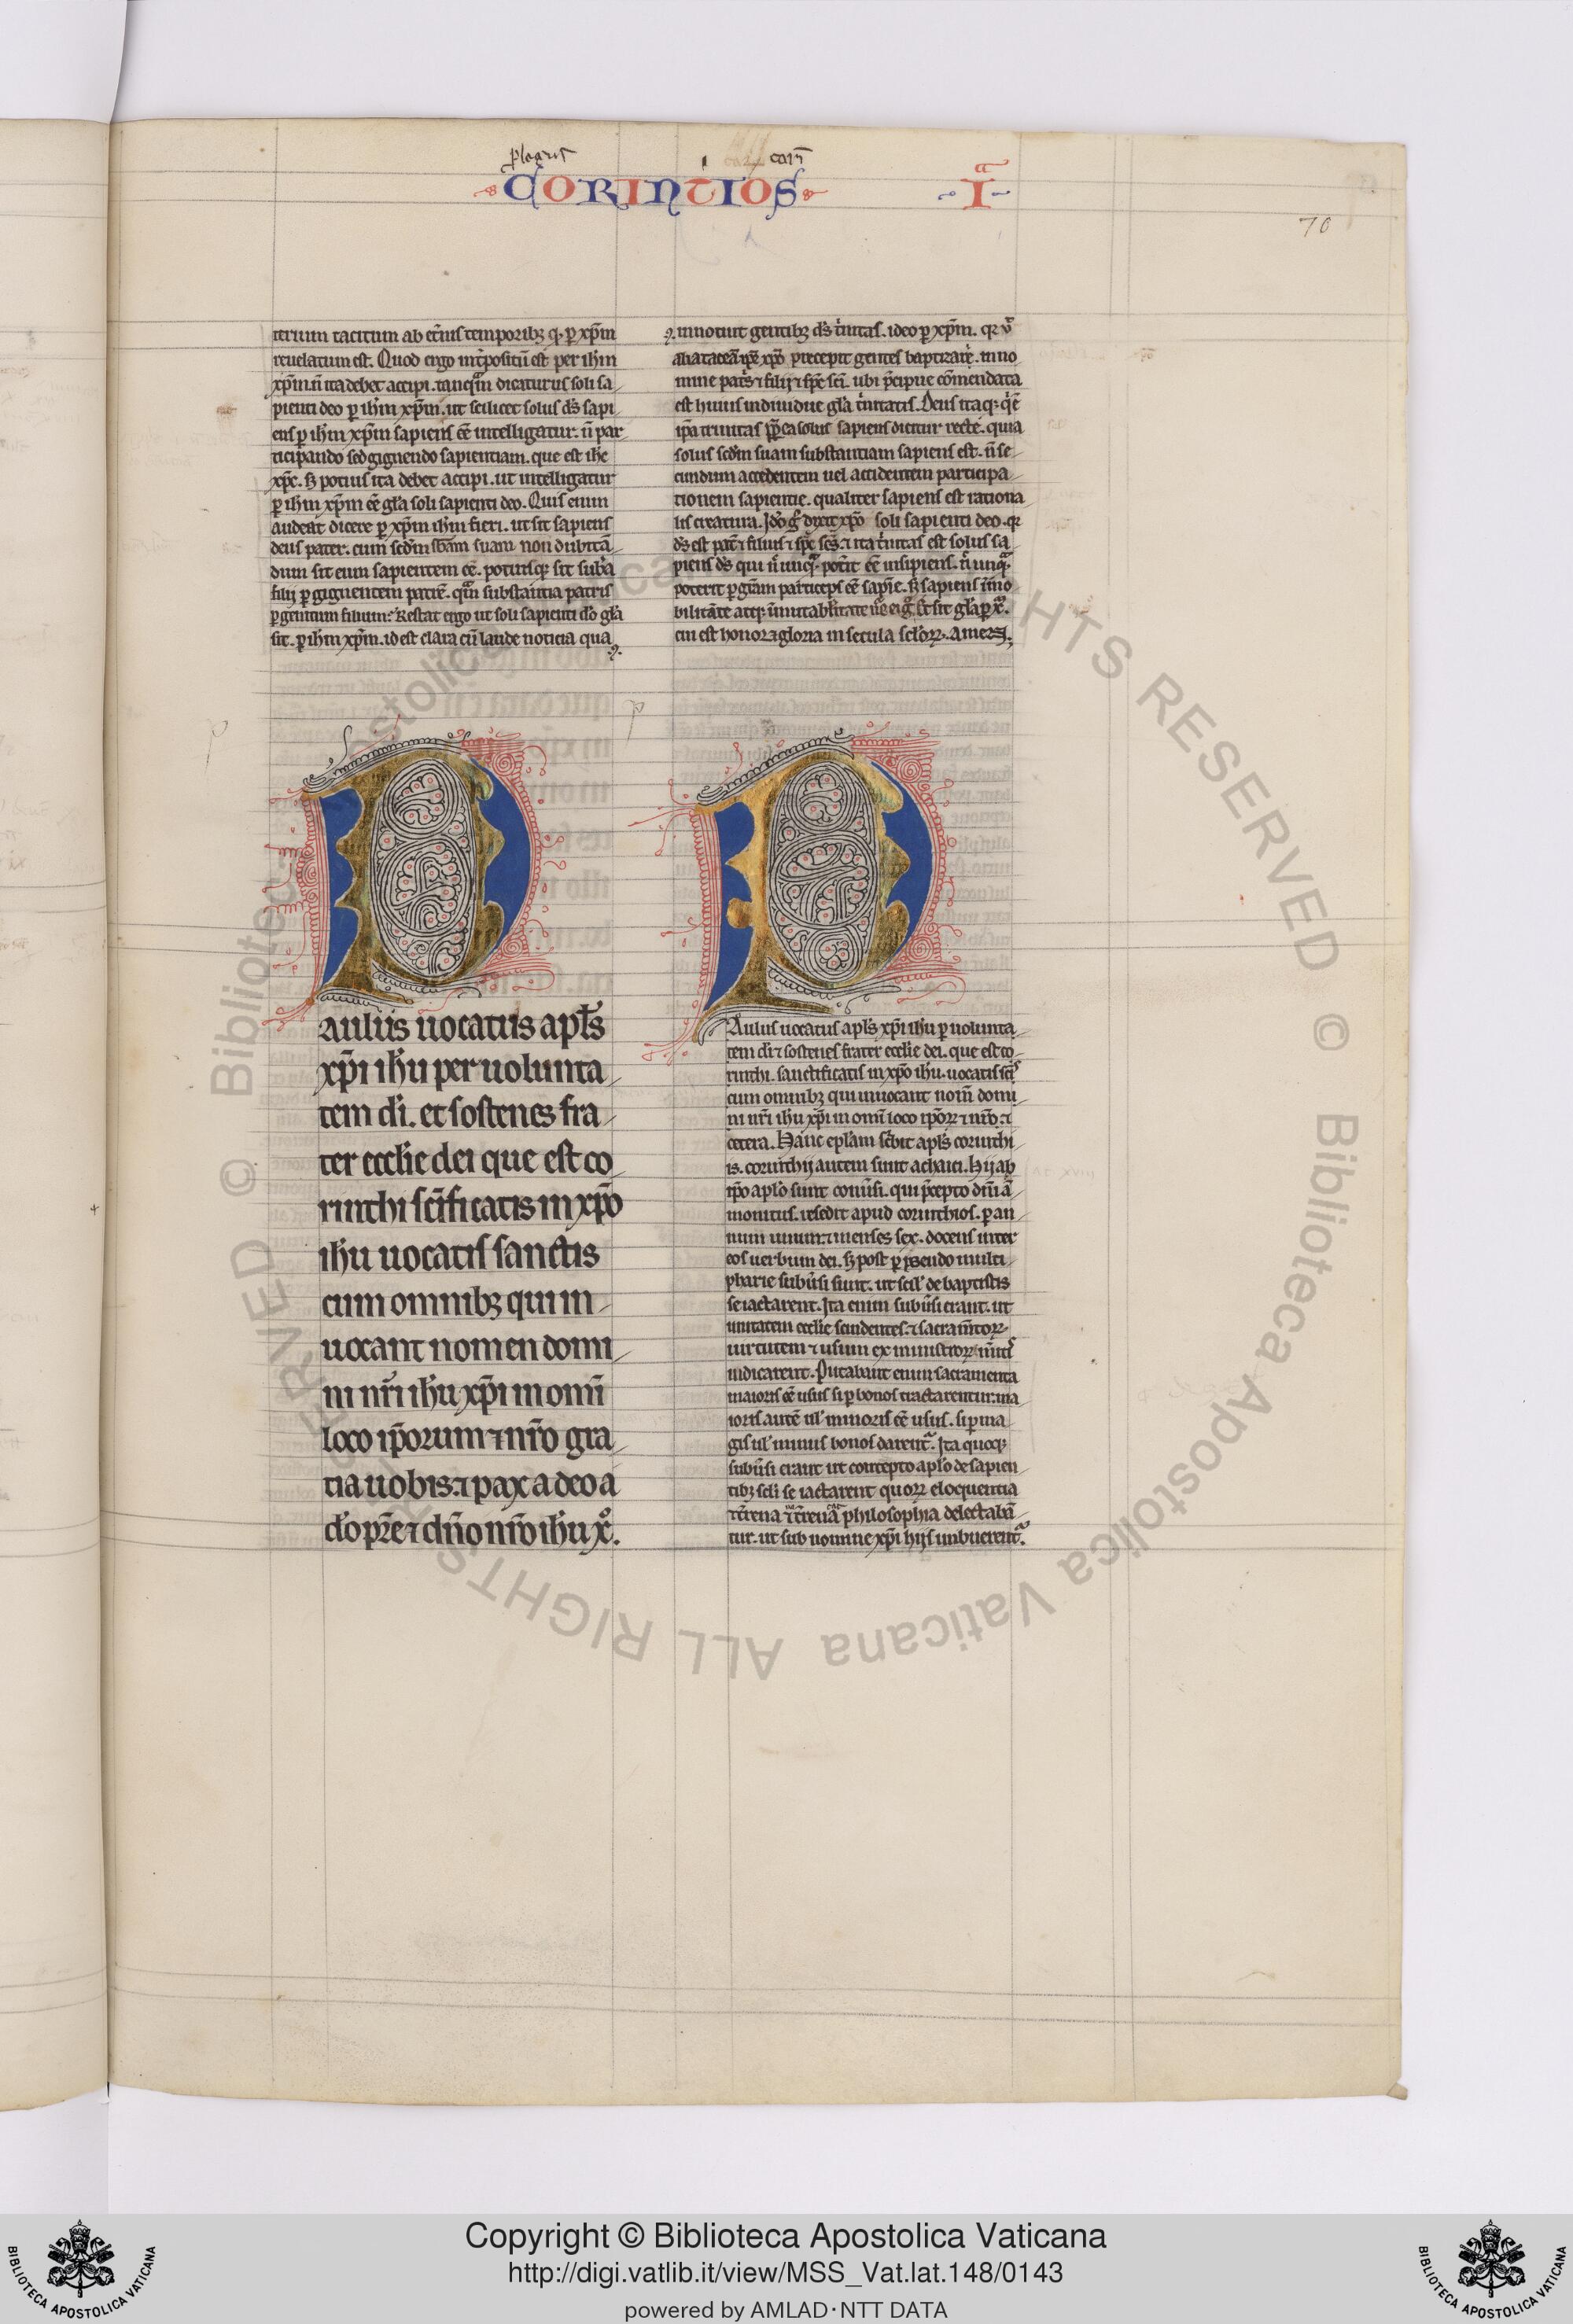 CORINTIOS I
70
terium tacitum ab et̄nis temporibꝫ qd̓ ꝑ xp̄m
reuelatum est. Quod ergo int̓positū est per ihm
xp̄m. n̄ ita debet accipi. tanquā dicaturus soli sa
pienti deo ꝑ ihm xp̄m. ut scilicet solus ds̄ sapi
ens ꝑ ihm xp̄m sapiens eē intelligatur. n̄ par
ticipando sed gignendo sapientiam. que est ihc
xpc̄. sꝫ potius ita debet accipi. ut intelligatur
ꝑ ihm xp̄m eē gl̄a soli sapienti deo. Quis enim
audeat dicere ꝑ xp̄m ihm fieri. ut sit sapiens
deus pater. cum scd̄m sb̄am suam non dubitā
dum sit eum sapientem eē. potiusqꝫ sit sub̄a
filij ꝑ gignentem patrē. quā substantia patris
ꝑ genitum filium. Restat ergo ut soli sapienti dō gl̄a
sit. ꝑ ihm xp̄m. id est clara cū laude noticia qua
innotuit gentibꝫ ds̄ t̓nitas. ideo ꝑ xp̄m. qꝛ ut
alia taceam ipse xpō precepit gentes baptizare. in no
mine pat̓s ⁊ filij ⁊ spc̄ sc̄i. ubi p̄cipue cōmendata
est huius indiuidue gl̄a t̓nitatis. Deus itaqꝫ qui ē
ip̄a trinitas ꝓpt̓ea solus sapiens dicitur recte. quia
solus scd̄m suam substantiam sapiens est. n̄ se
cundum accedentem uel accidentem participa
tionem sapientie. qualiter sapiens est rationa
lis creatura. Idō g̓ dixit xpō soli sapienti deo. qꝛ
ds̄ est pat̓ ⁊ filius ⁊ spc̄ sc̄s. ⁊ ita t̓nitas est solus sa
piens ds̄ qui n̄ unqꝫ pot̓it eē insipiens. n̄ unqꝫ
poterit ꝑ gr̄am particeps eē sapīe. sꝫ sapiens in̄mo
bilitate atqꝫ in̄mutabilitate
cui est honor ⁊ gloria in secula scl̓oꝝ. amen.
Paulus uocatus apl̄s
xp̄i ihu per uolunta
tem dī. et sostenes fra
ter eccl̄ie dei que est co
rinthi sc̄ificatis in xpō
ihu uocatis sanctis
cum omnibꝫ qui in
uocant nomen domi
ni nr̄i ihu xp̄i in omī
loco ip̄orum ⁊ nr̄o gra
tia uobis. ⁊ pax a deo a
dō pr̄e ⁊ dn̄o nr̄o ihu x̄o.
Paulus uocatus apl̄s xp̄i ihu ꝑ uolunta
tem dī ⁊ sostenes frater eccl̄ie dei. que est co
rinthi. sanctificatis in xpō ihu. uocatis sc̄is
cum omnibꝫ qui inuocant nom̄ domi
ni nr̄i ihu xp̄i in omī loco ip̄oꝝ ⁊ nr̄o. ⁊
cetera. Hanc epl̄am sc̓bit apl̄s corinthi
is. corinthij autem sunt achaici. Hij ab
ip̄o aplō sunt conūsi. qui p̄cepto dn̄i ā
monitus. resedit apud corinthios. ꝑ an
num unum ⁊ menses sex. docens inter
eos uerbum dei. sꝫ post ꝑ pseudo multi
pharie subūsi sunt. ut scil̓ de baptistis
se iactarent. Ita enim subūsi erant. ut
unitatem eccl̄ie scindentes. ⁊ sacram̄toꝝ
uirtutem ⁊ usum ex ministroꝝ m̄itis
iudicarent. Putabant enim sacramenta
maioris eē usus si ꝑ bonos tractarentur. ma
ioris autē ul̓ minoris eē usus. si ꝑ ma
gis ul̓ minus bonos darent̓. Ita quoqꝫ
subūsi erant ut contepto aplō de sapien
tibꝫ scl̓i se iactarent quoꝝ eloquentia
philosophia delectabā
tur. ut sub nomine xp̄i hijs imbuerent̓.
Copyright © Biblioteca Apostolica Vaticana
http://digi.vatlib.it/view/MSS_Vat.lat.148/0143
powered by AMLAD·NTT DATA
BIBLIOTECA APOSTOLICA VATICANA
BIBLIOTECA APOSTOLICA VATICANA